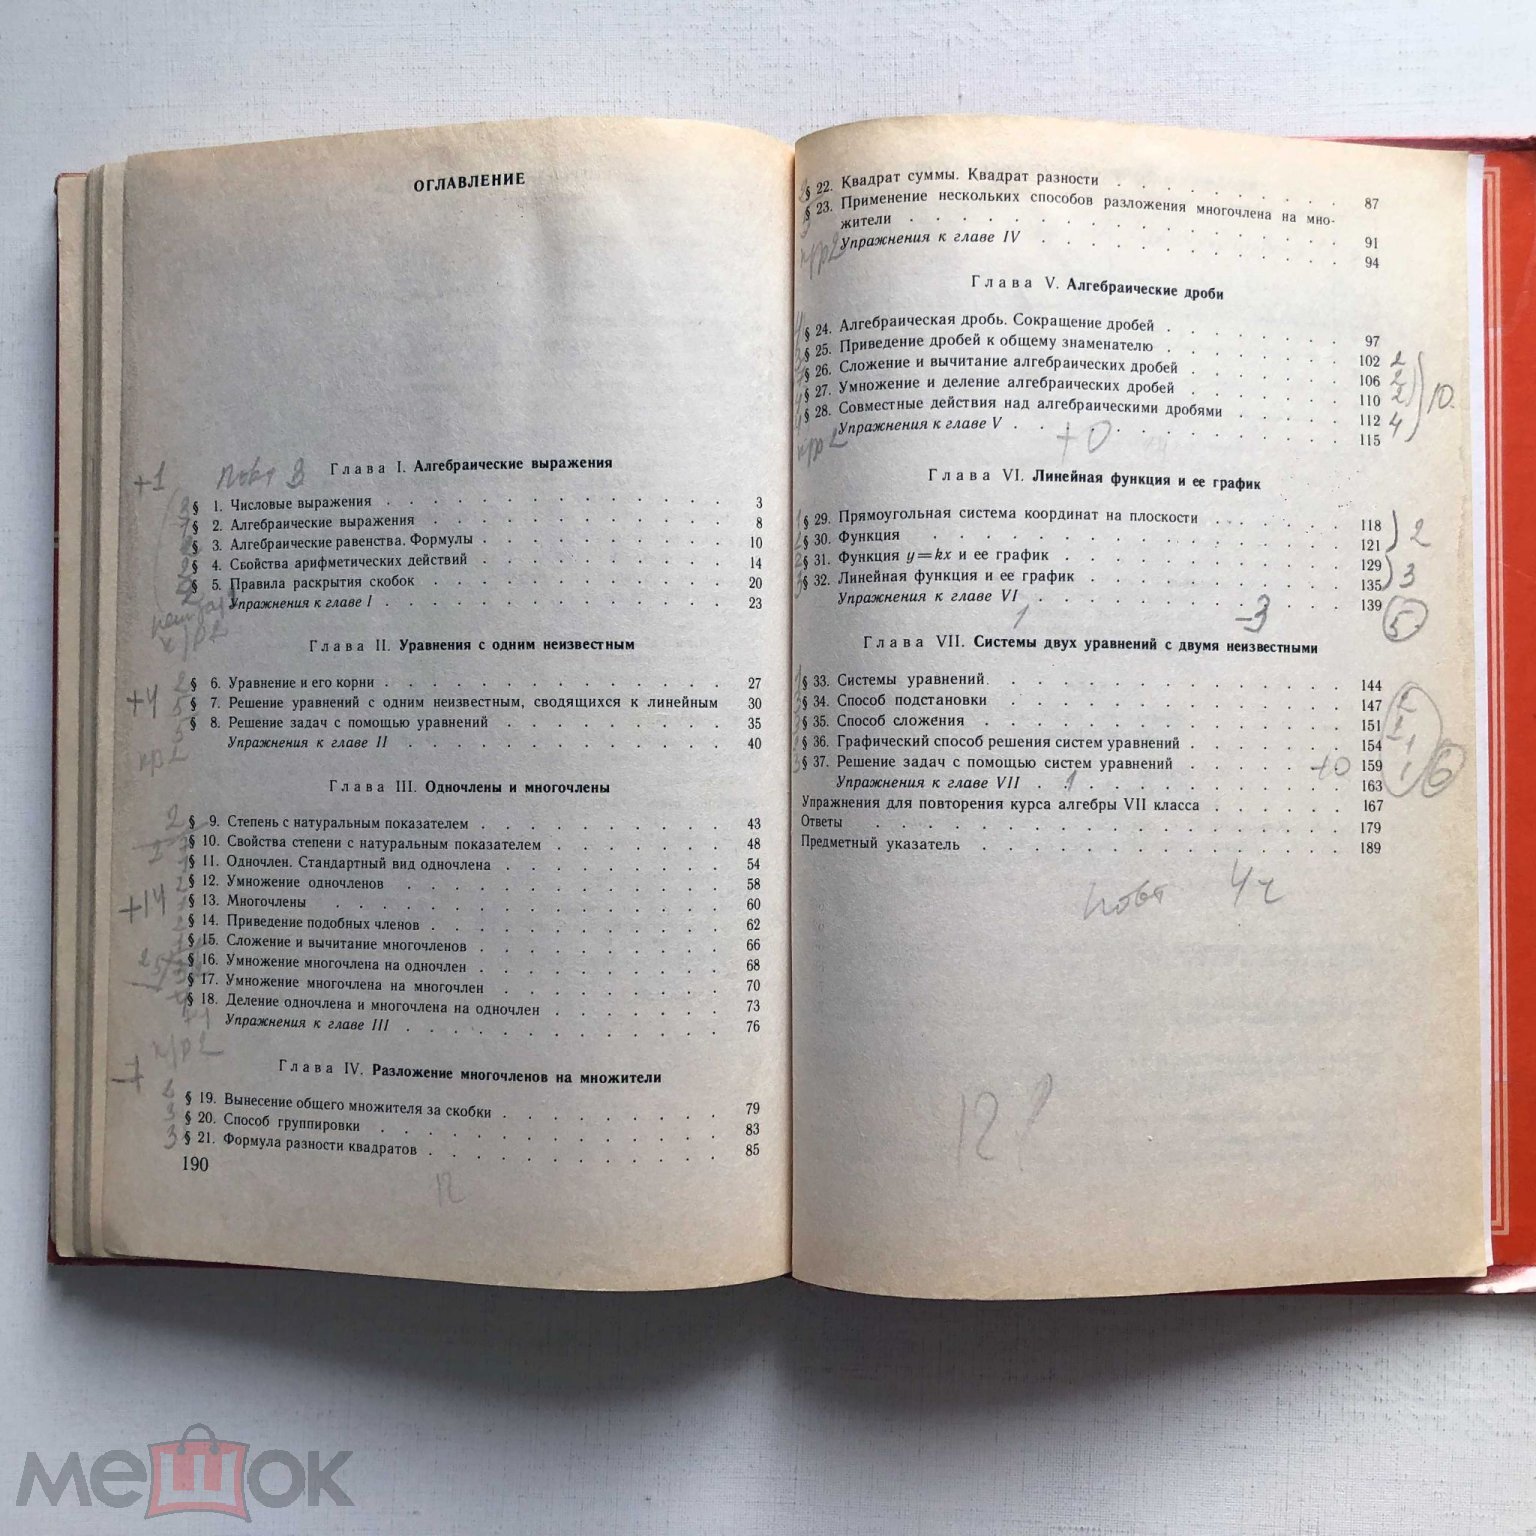 ОГЛАВЛЕНИЕ
+1 повт 3
Глава I. Алгебраические выражения
§ 1. Числовые выражения 3
§ 2. Алгебраические выражения 8
§ 3. Алгебраические равенства. Формулы 10
§ 4. Свойства арифметических действий 14
§ 5. Правила раскрытия скобок 20
Упражнения к главе I 23
к/р 2
Глава II. Уравнения с одним неизвестным
§ 6. Уравнение и его корни 27
+4 § 7. Решение уравнений с одним неизвестным, сводящихся к линейным 30
§ 8. Решение задач с помощью уравнений 35
Упражнения к главе II 40
кр 2
Глава III. Одночлены и многочлены
2 § 9. Степень с натуральным показателем 43
§ 10. Свойства степени с натуральным показателем 48
§ 11. Одночлен. Стандартный вид одночлена 54
§ 12. Умножение одночленов 58
+14 § 13. Многочлены 60
§ 14. Приведение подобных членов 62
§ 15. Сложение и вычитание многочленов 66
§ 16. Умножение многочлена на одночлен 68
§ 17. Умножение многочлена на многочлен 70
§ 18. Деление одночлена и многочлена на одночлен 73
Упражнения к главе III 76
к/р 2
-7
Глава IV. Разложение многочленов на множители
§ 19. Вынесение общего множителя за скобки 79
3 § 20. Способ группировки 83
3 § 21. Формула разности квадратов 85
190
12
§ 22. Квадрат суммы. Квадрат разности 87
§ 23. Применение нескольких способов разложения многочлена на мно-
жители 91
Упражнения к главе IV 94
к/р 2
Глава V. Алгебраические дроби
§ 24. Алгебраическая дробь. Сокращение дробей 97
§ 25. Приведение дробей к общему знаменателю 102 2
§ 26. Сложение и вычитание алгебраических дробей 106 2
§ 27. Умножение и деление алгебраических дробей 110 2 10
§ 28. Совместные действия над алгебраическими дробями 112 4
Упражнения к главе V 115
к/р 2 +0
Глава VI. Линейная функция и ее график
§ 29. Прямоугольная система координат на плоскости 118
§ 30. Функция 121 2
§ 31. Функция y=kx и ее график 129
§ 32. Линейная функция и ее график 135 3
Упражнения к главе VI 139 5
1 -3
Глава VII. Системы двух уравнений с двумя неизвестными
§ 33. Системы уравнений 144
§ 34. Способ подстановки 147 2
§ 35. Способ сложения 151 2
§ 36. Графический способ решения систем уравнений 154 1
§ 37. Решение задач с помощью систем уравнений +0 159 1 6
Упражнения к главе VII 1 163
Упражнения для повторения курса алгебры VII класса 167
Ответы 179
Предметный указатель 189
повт 4ч
12
мешок